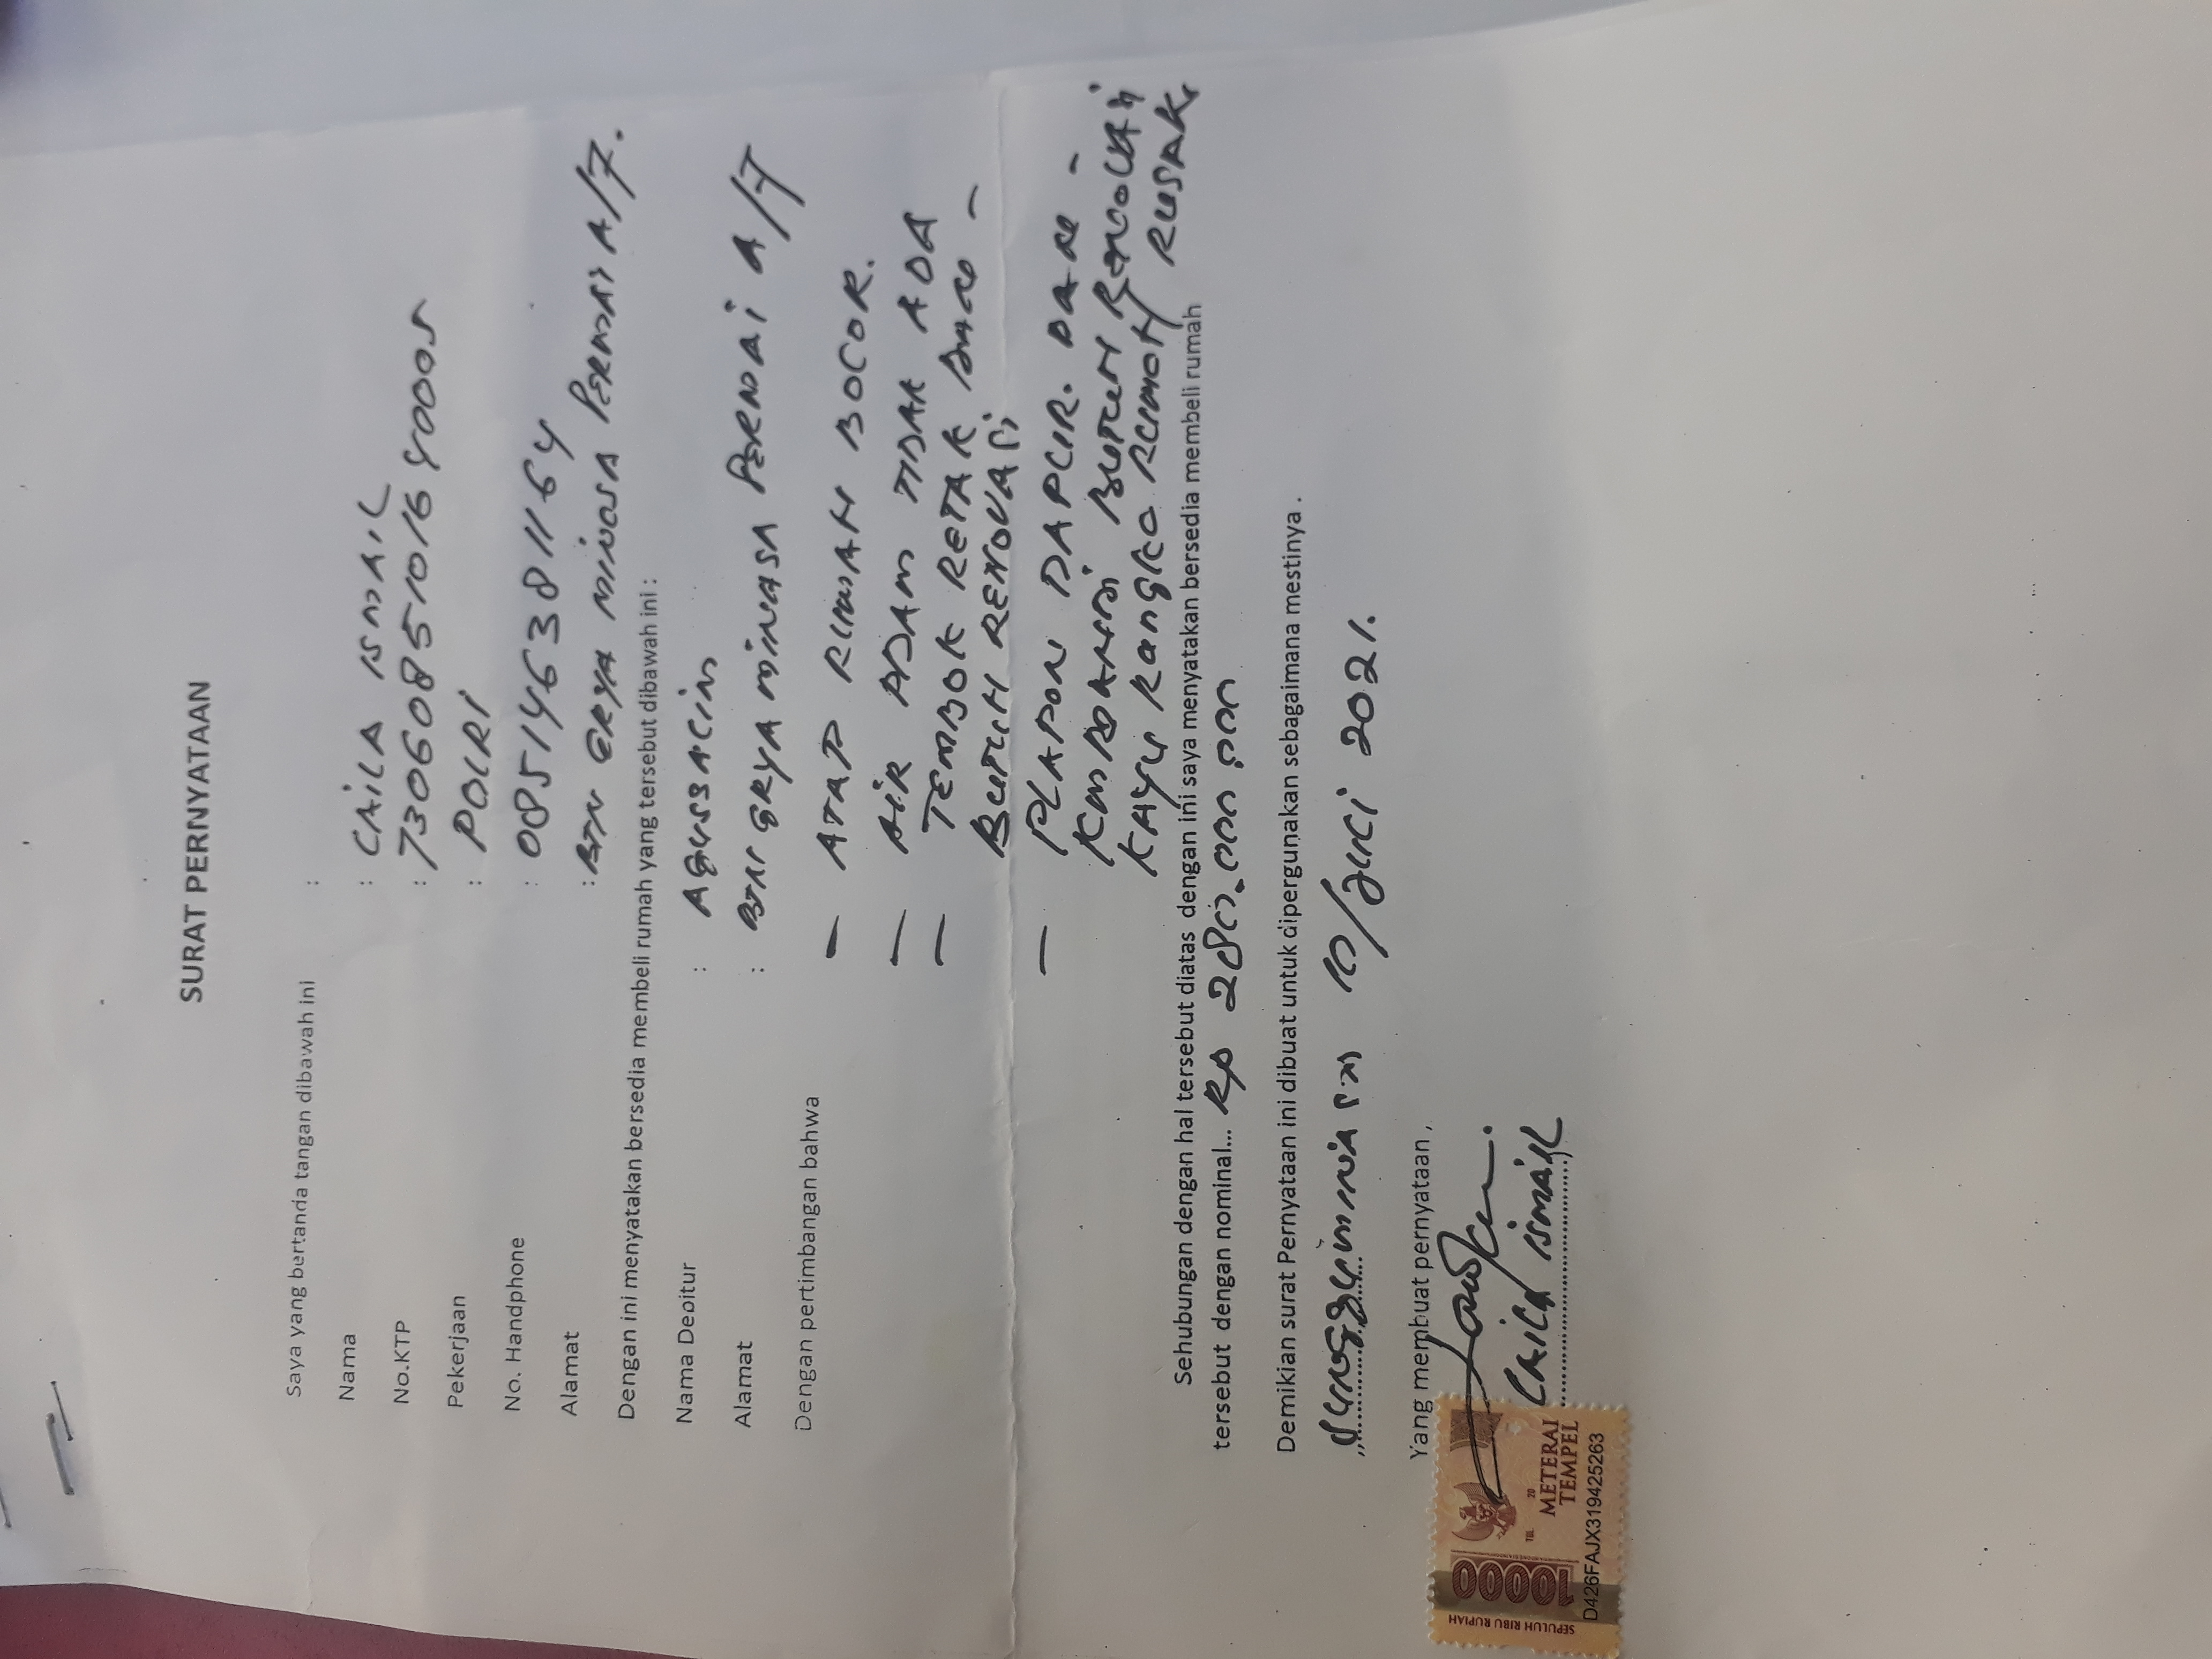 SURAT PERNYATAAN
Saya yang bertanda tangan dibawah ini :
Nama : CAILA ISMAIL
No.KTP : 7306085101640005
Pekerjaan : POLRI
No. Handphone : 085146381164
Alamat : BTN GRYA MINASA PERMAI A/7.
Dengan ini menyatakan bersedia membeli rumah yang tersebut dibawah ini :
Nama Debitur : AGUSSALIM
Alamat : BTN GRYA MINASA PERMAI A/7
Dengan pertimbangan bahwa
— ATAP RUMAH BOCOR.
— AIR PDAM TIDAK ADA
— TEMBOK RETAK
BUTUH RENOVASI
— PLAPON DAPUR. DAN -
KAMAR MANDI BUTUH RENOVASI
KAYU RANGKA RUMAH RUSAK
Sehubungan dengan hal tersebut diatas dengan ini saya menyatakan bersedia membeli rumah
tersebut dengan nominal... Rp 280.000.000
Demikian surat Pernyataan ini dibuat untuk dipergunakan sebagaimana mestinya .
SUNGGUMINASA 10/Juni 2021.
Yang membuat pernyataan ,
CAILA ISMAIL
SEPULUH RIBU RUPIAH
10000
TGL. 20
METERAI
TEMPEL
D426FAJX319425263